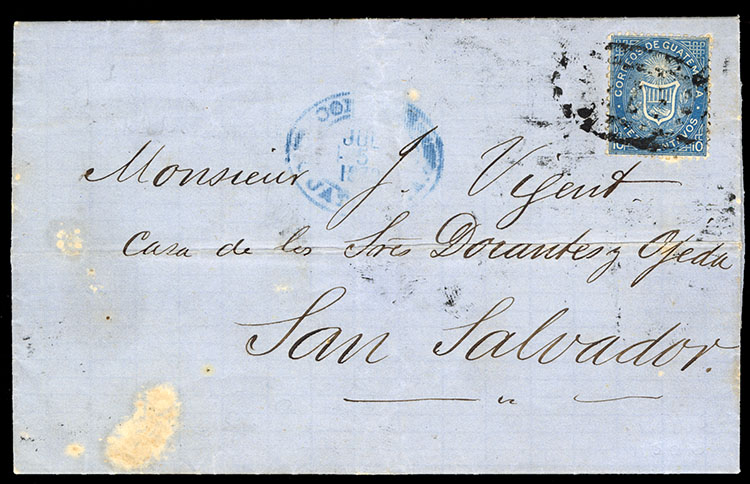 CORREOS DE GUATEMALA
10 10
JUL
Monsieur J. Vigent
Casa de los Sres Dorantes y Ojeda
San Salvador.